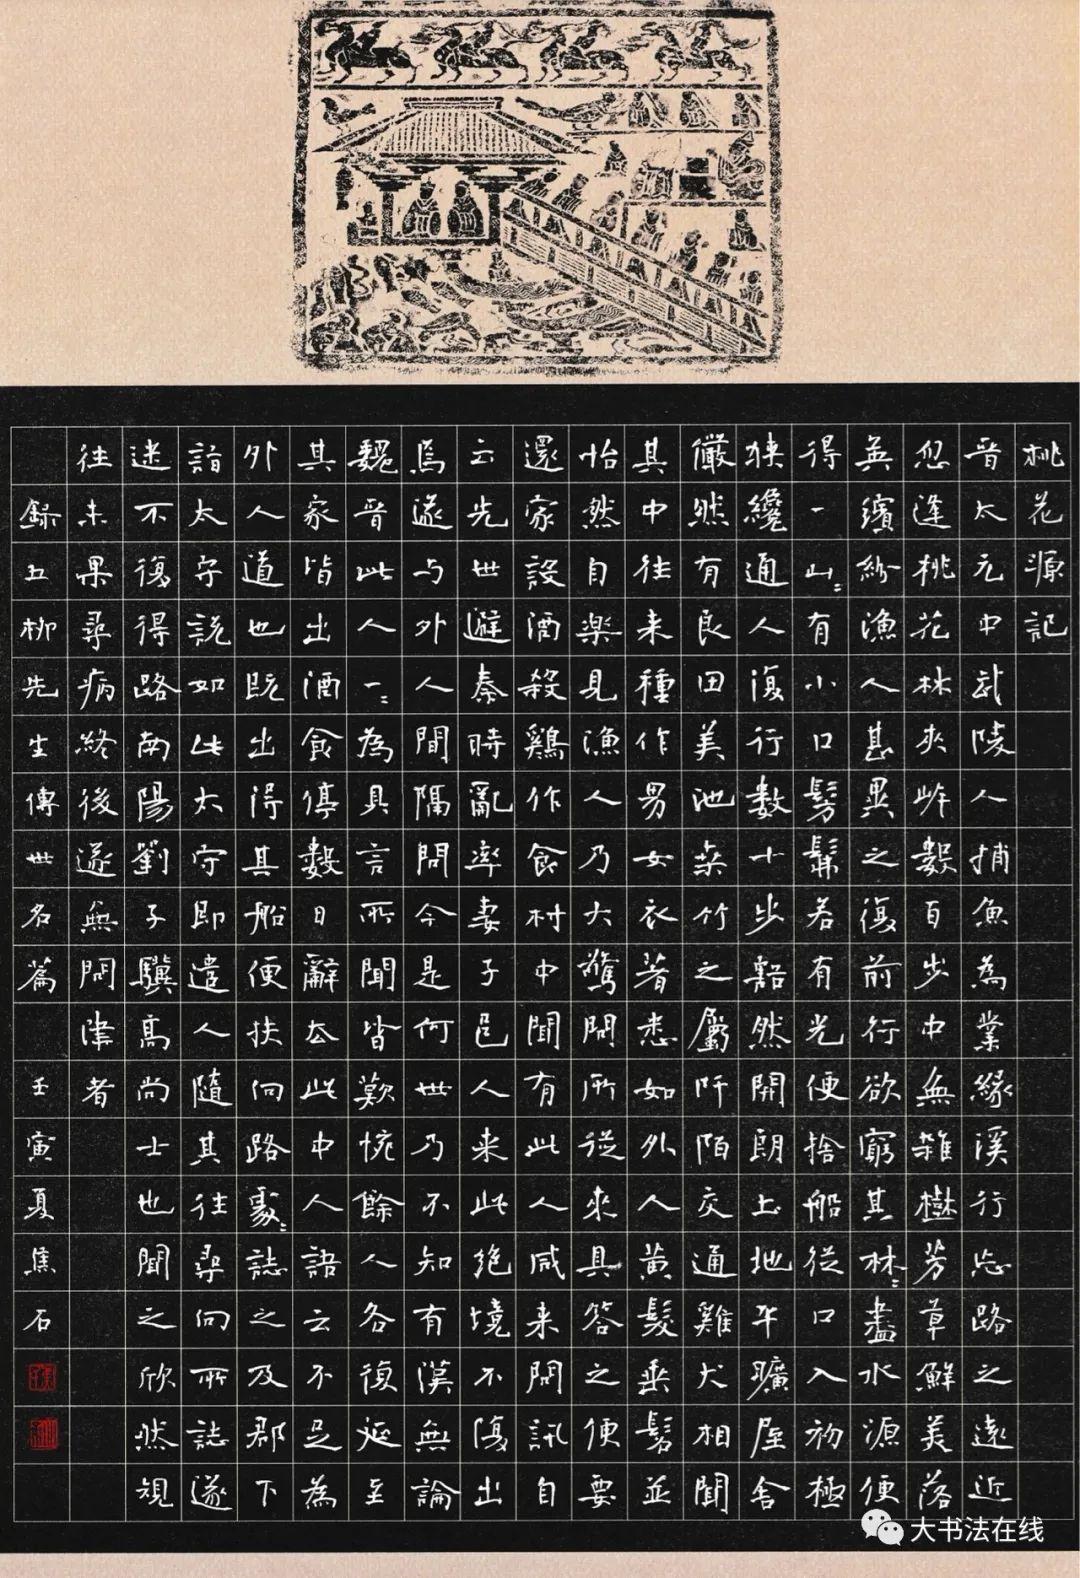 桃花源記
晉太元中武陵人捕魚為業緣溪行忘路之遠近
忽逢桃花林夾岸數百步中無雜樹芳草鮮美落
英繽紛漁人甚異之復前行欲窮其林〻盡水源便
得一山〻有小口髣髴若有光便捨船從口入初極
狹纔通人復行數十步豁然開朗土地平曠屋舍
儼然有良田美池桑竹之屬阡陌交通雞犬相聞
其中往来種作男女衣著悉如外人黃髮垂髫並
怡然自樂見漁人乃大驚問所從來具答之便要
還家設酒殺鷄作食村中聞有此人咸来問訊自
云先世避秦時亂率妻子邑人来此絕境不復出
焉遂与外人間隔問今是何世乃不知有漢無論
魏晉此人一〻為具言所聞皆歎惋餘人各復延至
其家皆出酒食停數日辭去此中人語云不足為
外人道也既出得其船便扶向路處〻誌之及郡下
詣太守說如此太守即遣人隨其往尋向所誌遂
迷不復得路南陽劉子驥高尚士也聞之欣然規
往未果尋病終後遂無問津者
錄五柳先生傳世名篇 壬寅夏焦石
大书法在线